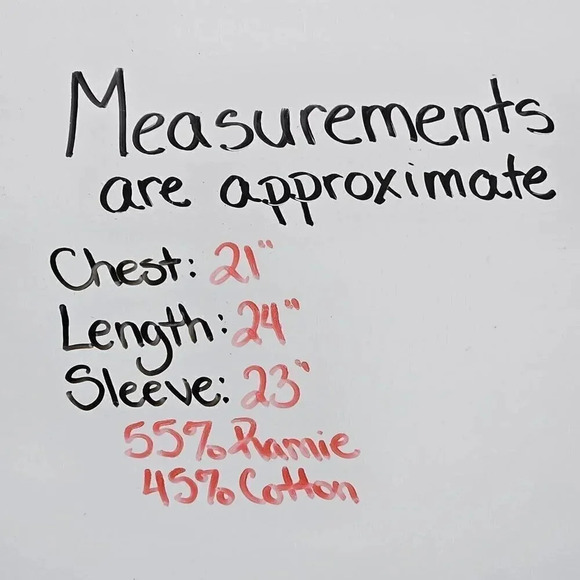 Measurements
are approximate
Chest: 21"
Length: 24"
Sleeve: 23"
55% Ramie
45% Cotton